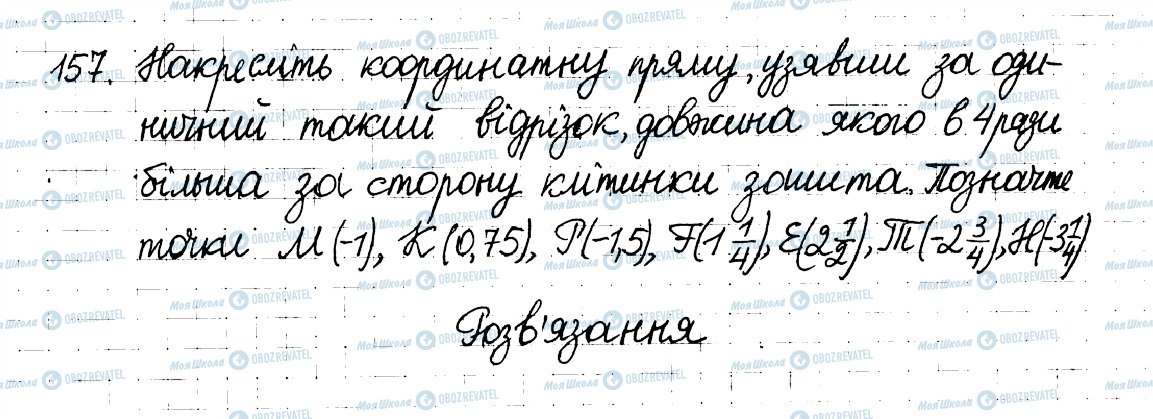 157. Накресліть координатну пряму, узявши за оди-
ничний такий відрізок, довжина якого в 4 рази
більша за сторону клітинки зошита. Позначте
точки M(-1), K(0,75), P(-1,5), F(1 1/4), E(2 1/2), T(-2 3/4), H(-3 1/4)
Розв'язання